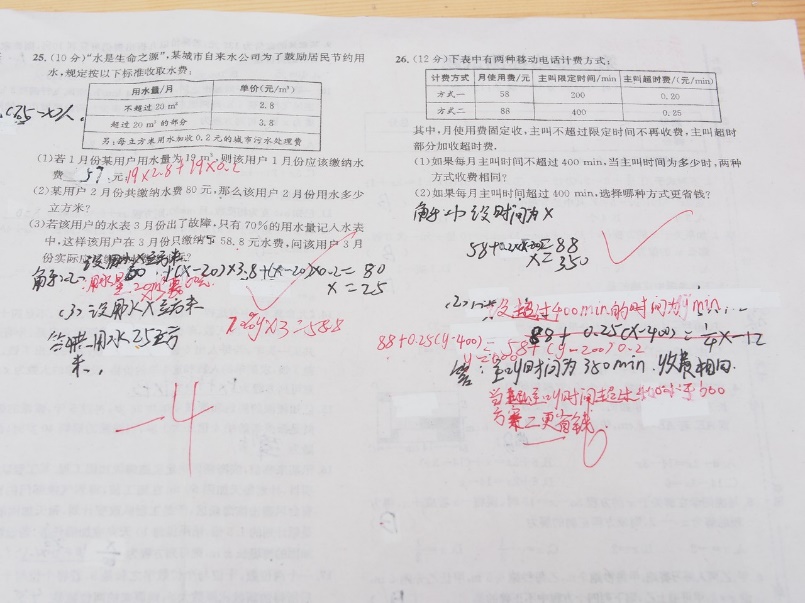 25.(10分)“水是生命之源”,某城市自来水公司为了鼓励居民节约用
水,规定按以下标准收取水费:
用水量/月 单价(元/m³)
不超过20 m³ 2.8
超过20 m³的部分 3.8
另:每立方米用水加收0.2元的城市污水处理费
(1)若1月份某用户用水量为19 m³,则该用户1月份应该缴纳水
费 57 元 19×2.8+19×0.2
(2)某用户2月份共缴纳水费80元,那么该用户2月份用水多少
立方米?
(3)若该用户的水表3月份出了故障,只有70%的用水量记入水表
中,这样该用户在3月份只缴纳了58.8元水费,问该用户3月
(x-20)×3.8+(x-20)×0.2=80
x=25
(3)设用水x立方米
70%y×3=58.8
用水25立方
米.
-4
26.(12分)下表中有两种移动电话计费方式:
计费方式 月使用费/元 主叫限定时间/min 主叫超时费/(元/min)
方式一 58 200 0.20
方式二 88 400 0.25
其中,月使用费固定收,主叫不超过限定时间不再收费,主叫超时
部分加收超时费.
(1)如果每月主叫时间不超过400 min,当主叫时间为多少时,两种
方式收费相同?
(2)如果每月主叫时间超过400 min,选择哪种方式更省钱?
设时间为x
=88
x=350
设超过400min的时间为y min
88+0.25(x-400)=
88+0.25(y-400)=
58+(y-200)0.2
答:主叫时间为350min.收费相同.
方案二更省钱